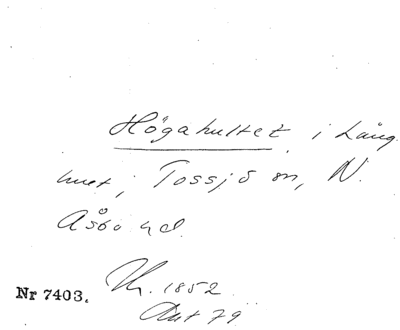 Högahultet i Lång-
huet, Tossjö sn, N.
Åsbo hd.
Nr 7403. Kr. 1852
Akt 79